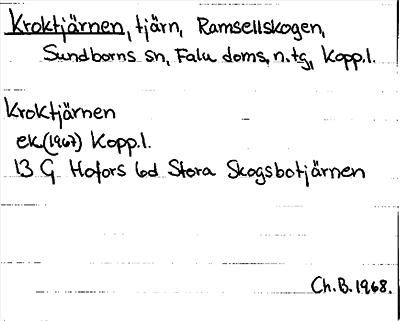 Kroktjärnen, tjärn, Ramsellskogen,
Sundborns sn, Falu doms. n. tg, Kopp.l.
Kroktjärnen
ek.(1967) Kopp.l.
13 G Hofors 6d Stora Skogsbotjärnen
Ch.B.1968.